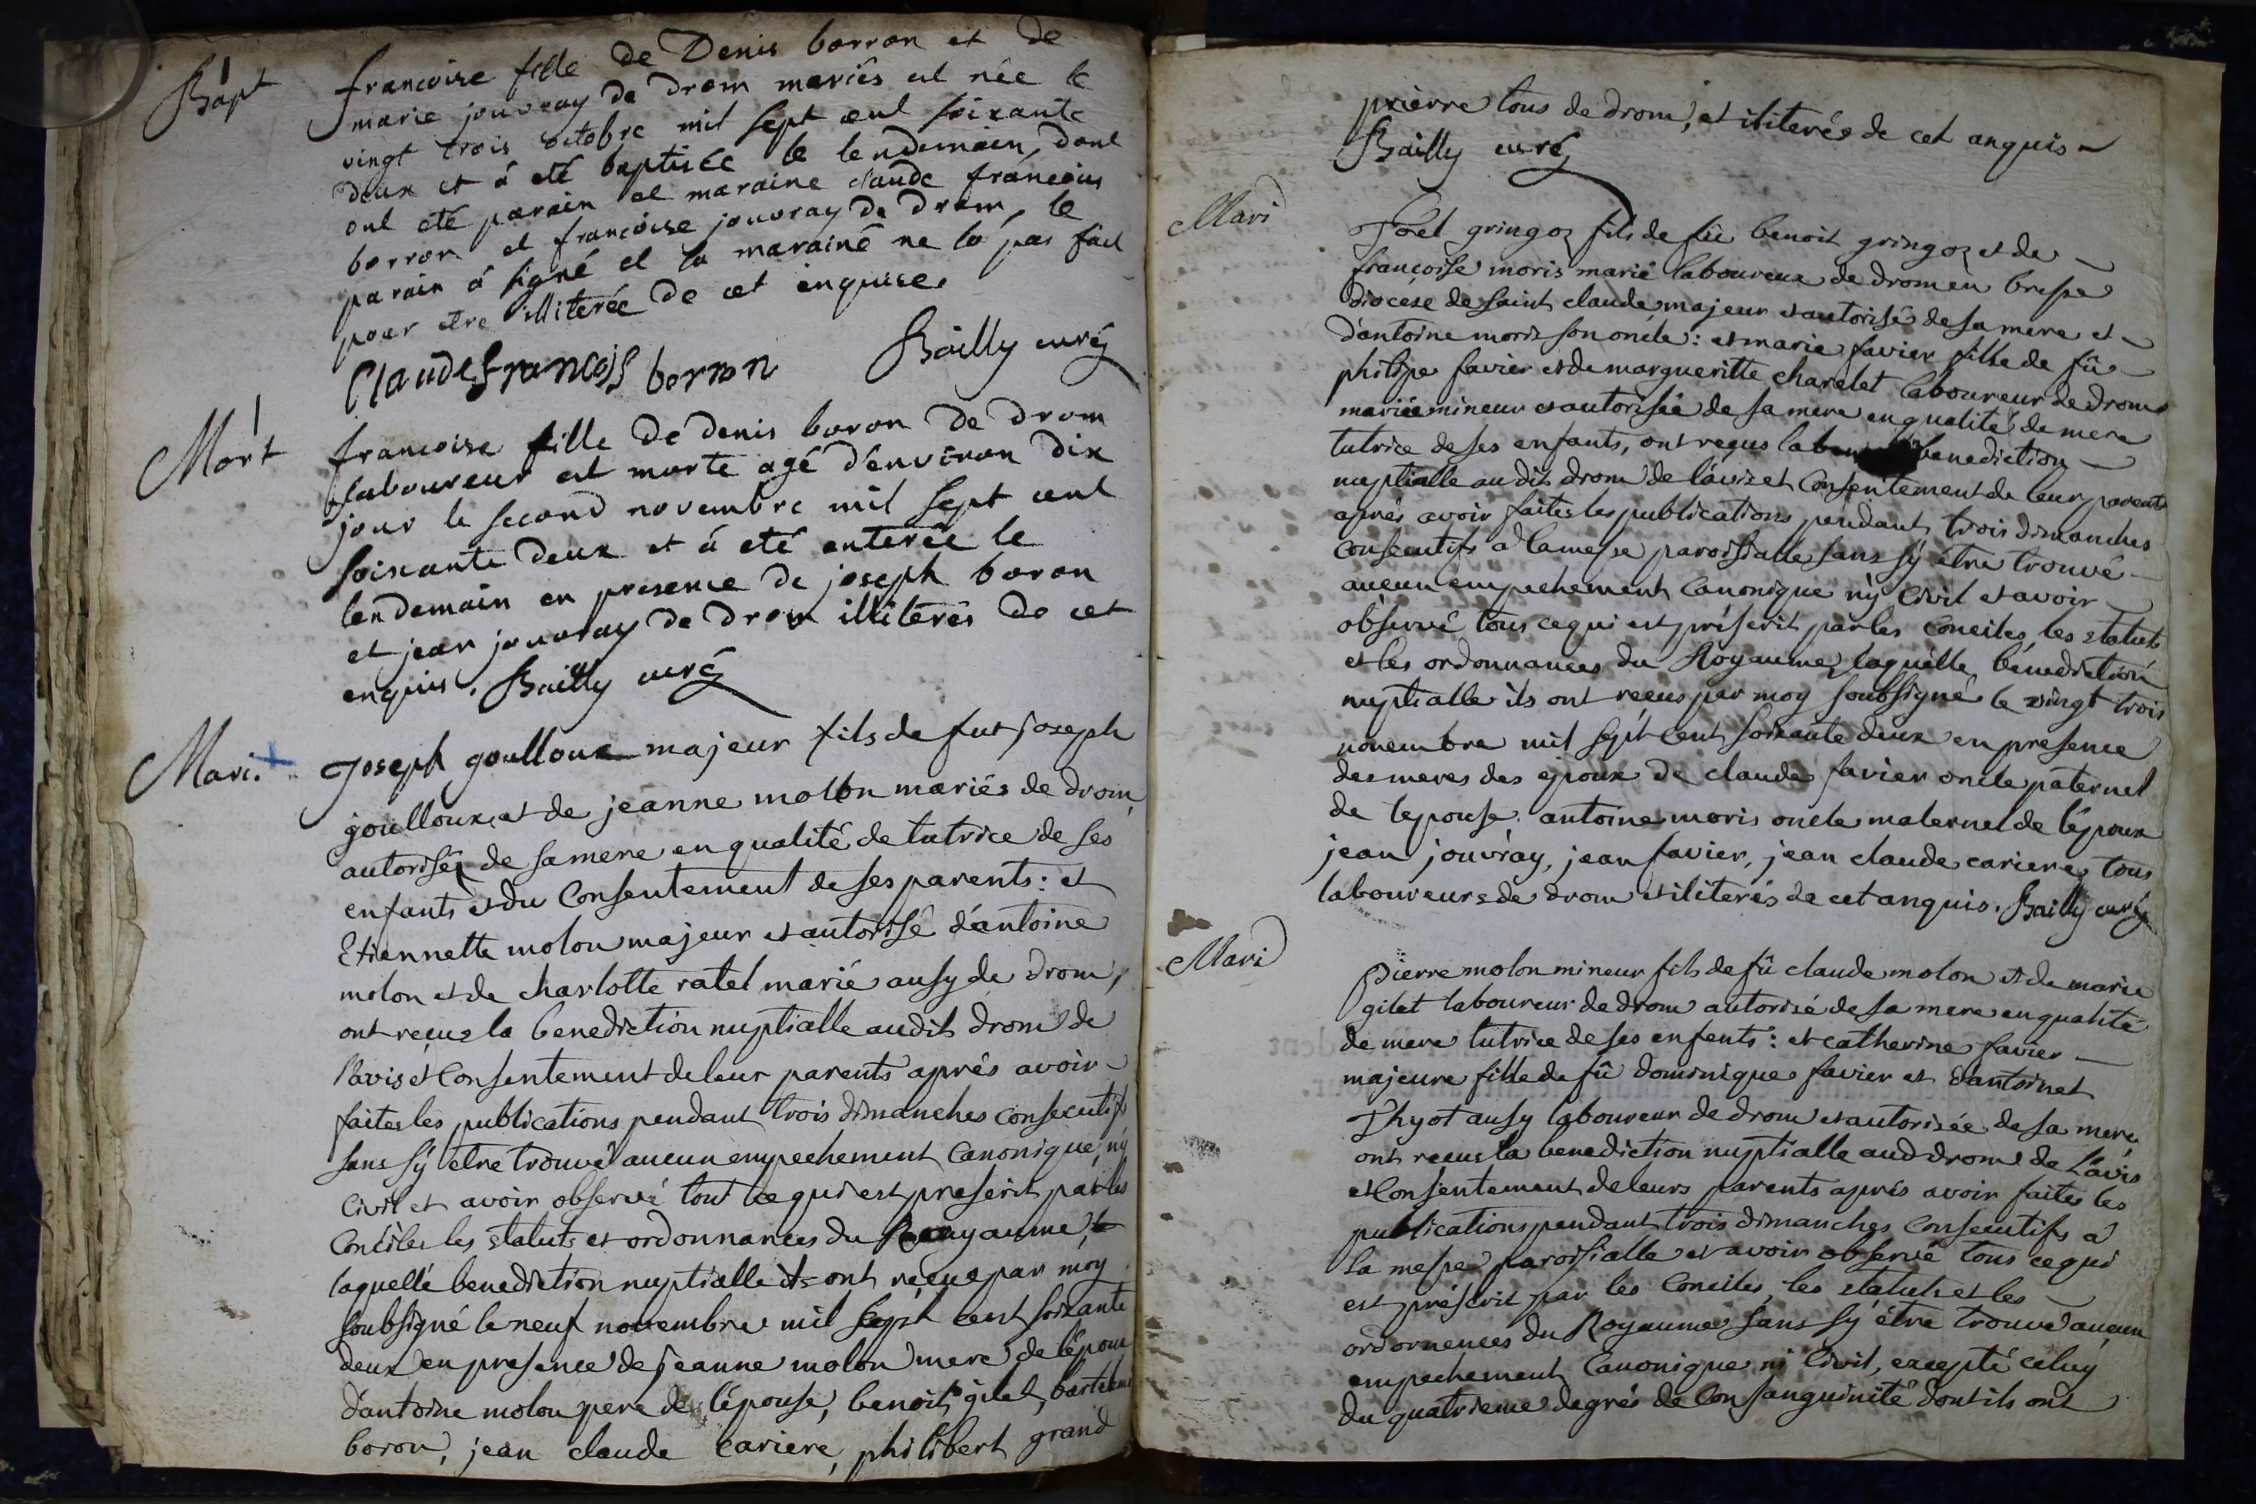 Bapt
francoise fille de Denis borron et de
marie jouvray de drom mariés est née le
vingt trois octobre mil sept cent soixante
deux et à eté baptisée le lendemain, dont
ont eté parain et maraine claude francois
borron et francoise jouvray de drom, le
parain à signé et la marainé ne la pas fait
pour etre illiterée de cet enquise.
Claude francois borron Bailly curé
Mort
francoise fille de denis boron de drom
laboureur est morte agé d'environ dix
jour le second novembre mil sept cent
soixante deux et à eté enterée le
lendemain en presence de joseph boron
et jean jouvray de drom illiterés de cet
enquis. Bailly curé
Mari.
Joseph goulloux majeur fils de fut joseph
goulloux et de jeanne molon mariés de drom
autorisé de sa mere en qualité de tutrice de ses
enfants et du Consentement de ses parents : et
Etiennette molon majeur et autorisé d'antoine
molon et de charlotte ratel marié ausy de drom,
ont reçus la benediction nuptialle audit drom de
l'avis et Consentement de leur parents aprés avoir
faites les publications pendant trois dimanches consecutifs
sans sÿ etre trouvé aucun empechement Canonique, nÿ
Civil et avoir observé tout ce qui est prescrit par les
Conciles les statuts et ordonnances du Royaume,
laquellé benediction nuptialle ils ont reçue par moy
soubsigné le neuf novembre mil sept cent soixante
deux en presence de jeanne molon mere de lépoux
d'antoine molon pere de l'épouse, benoit gilet,
boron, jean claude cariere, philibert grand
prierre tous de drom, et iliterés de cet anquis
Bailly curé
Mari
Joël gringoz fils de fû benoit gringoz et de
francoise moris marié laboureux de drom en bresse
diocése de saint claude majeur et autorisé de sa mere et
d'antoine moris son oncle : et marie favier fille de fû
philipe favier et de margueritte charelet laboureur de drom
mariée mineur et autorisée de sa mere en qualité de mere
tutrice de ses enfants, ont reçus la benediction
nuptialle audit drom de l'avis et Consentement de leur parents
aprés avoir faites les publications pendant trois dimanches
consecutifs à la messe paroissialle sans sÿ être trouvé
aucun empechement Canonique nÿ Civil et avoir
observé tous ce qui est préscrit par les Conciles les statuts
et les ordonnances du Royaume, laquélle bénediction
nuptialle ils ont reçus par moy soubsigné le vingt trois
novembre mil sépt cent soixante deux en presence
des meres des époux de claude favier oncle paternel
de lepouse. antoine moris oncle maternel de l'époux
jean jouvray, jean favier, jean claude cariere, tous
laboureurs de drom et iliterés de cet anquis. Bailly curé
Mari
Pierre molon mineur fils de fû claude molon et de marie
gilet laboureur de drom autorisé de sa mere en qualité
de mere tutrice de ses enfents : et catherine favier
majeure fille de fû dominique favier et d'antoinet
Thyot ausy laboureur de drom et autorisée de sa mere,
ont reçus la benediction nuptialle aud drom de l'avis
et Consentement de leurs parents aprés avoir faites les
publications pendant trois dimanches Consecutifs a
la messe paroissialle et avoir observé tous ce qui
est préscrit par les Conciles, les statuts et les
ordornences du Royaume sans sÿ étre trouvé aucun
empechement Canonique ni Civil, excepté celuÿ
du quatrieme degrés de Consanguinité dont ils ont